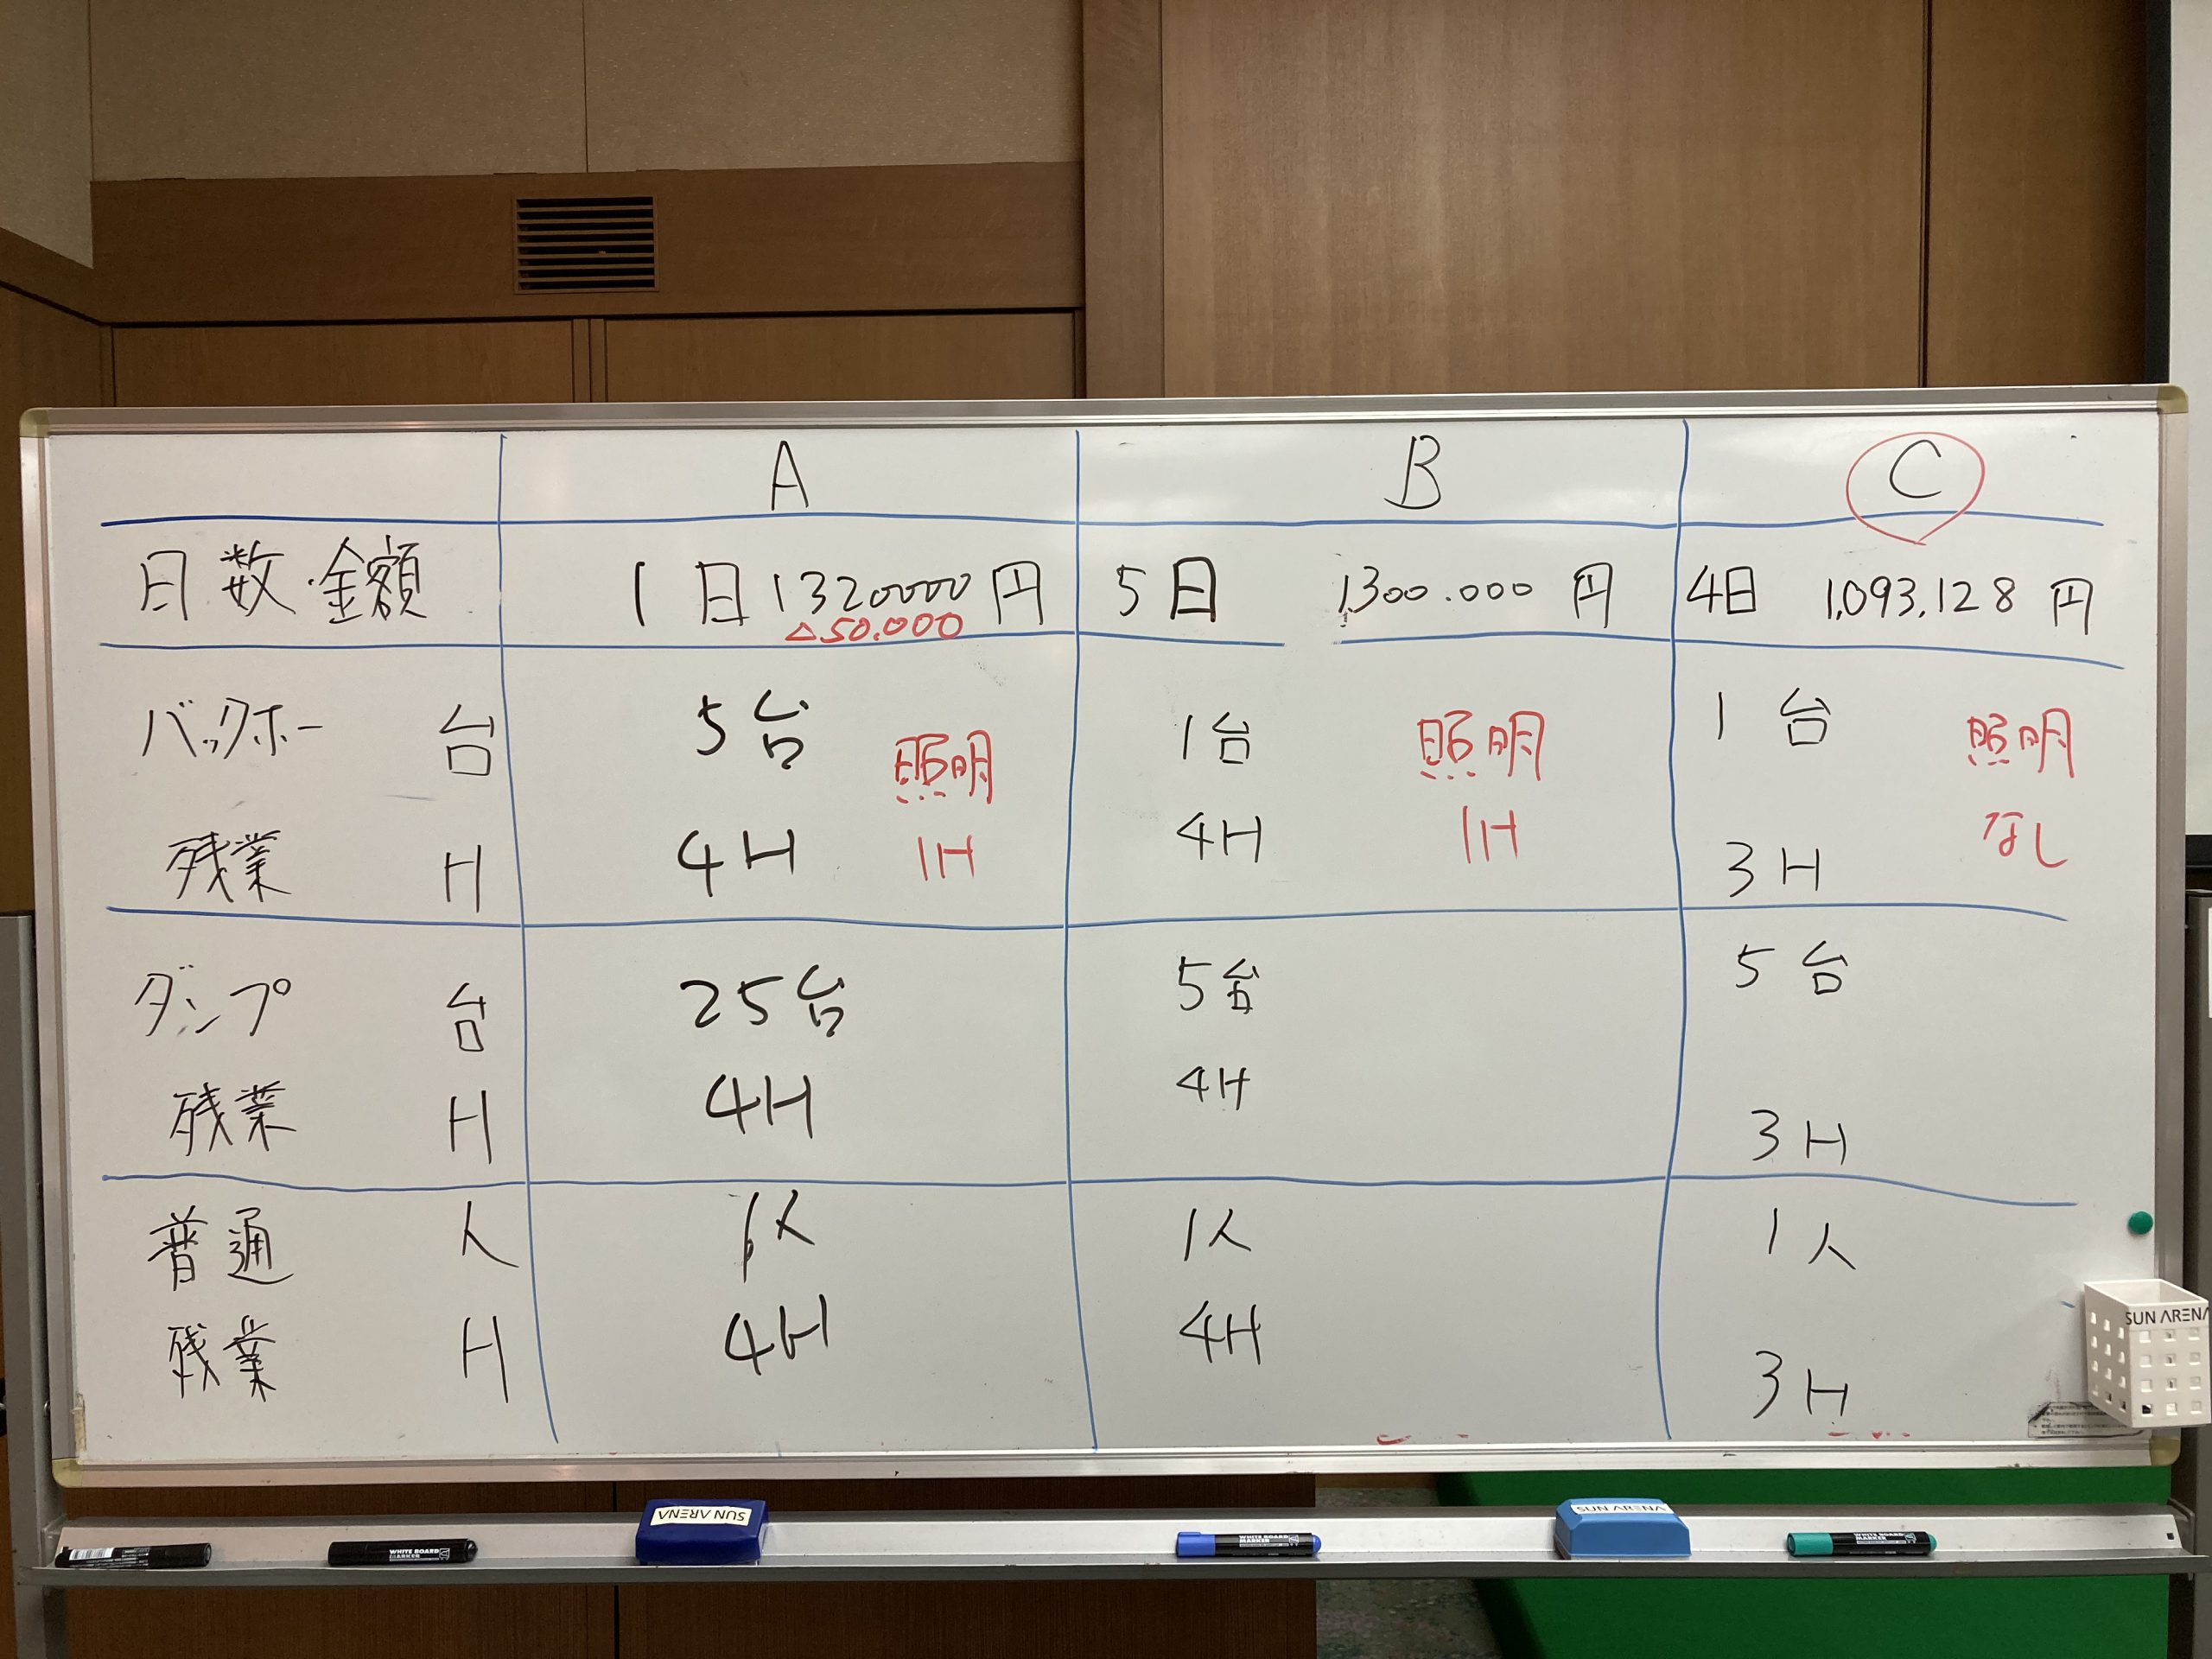 A B C
日数・金額 1日 1320000円 5日 1,300.000円 4日 1,093,128円
△50.000
バックホー 台 5台 照明 1台 照明 1台 照明
残業 H 4H 1H 4H 1H 3H なし
ダンプ 台 25台 5台 5台
残業 H 4H 4H 3H
普通 人 人 1人 1人
残業 H 4H 4H 3H
SUN ARENA
SUN ARENA
WHITE BOARD MARKER
WHITE BOARD MARKER
SUN ARENA
WHITE BOARD MARKER